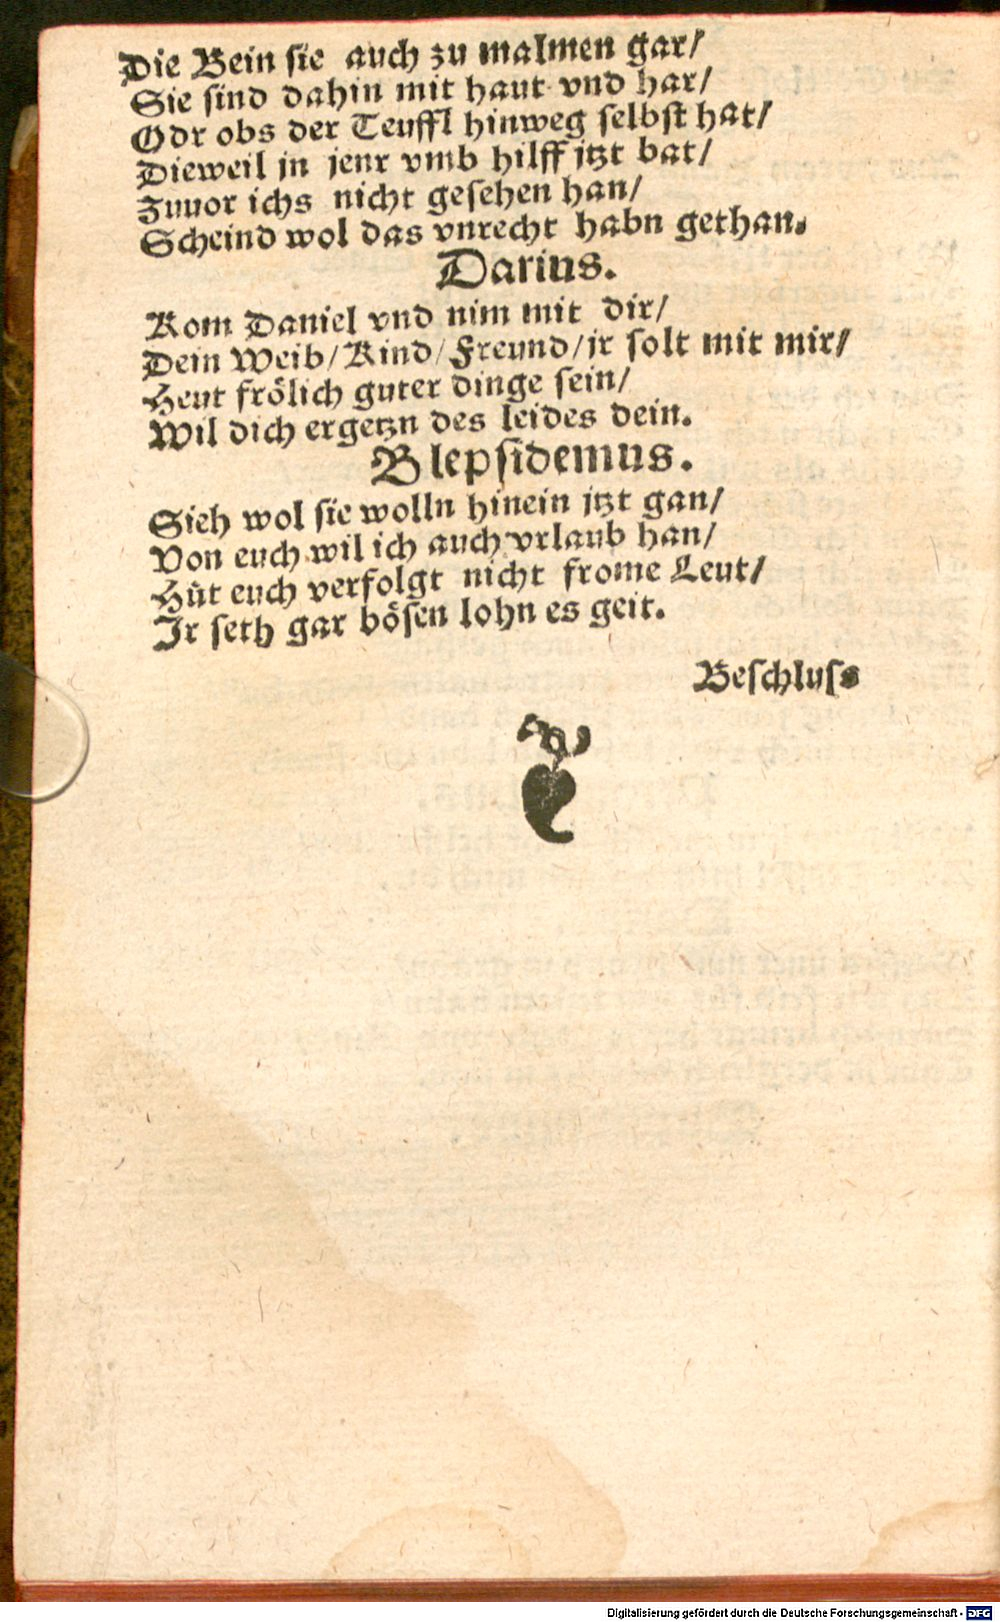 Die Bein sie auch zu malmen gar/
Sie sind dahin mit haut vnd har/
Odr obs der Teuffl hinweg selbst hat/
Dieweil jn jenr vmb hilff jtzt bat/
Zuuor ichs nicht gesehen han/
Scheind wol das vnrecht habn gethan.
Darius.
Kom Daniel vnd nim mit dir/
Dein Weib/Kind/Freund/jr solt mit mir/
Heut frölich guter dinge sein/
Wil dich ergetzn des leides dein.
Blepsidemus.
Sieh wol sie wolln hinein jtzt gan/
Von euch wil ich auch vrlaub han/
Hüt euch verfolgt nicht frome Leut/
Ir seth gar bösen lohn es geit.
Beschlus
Digitalisierung gefördert durch die Deutsche Forschungsgemeinschaft - DFG